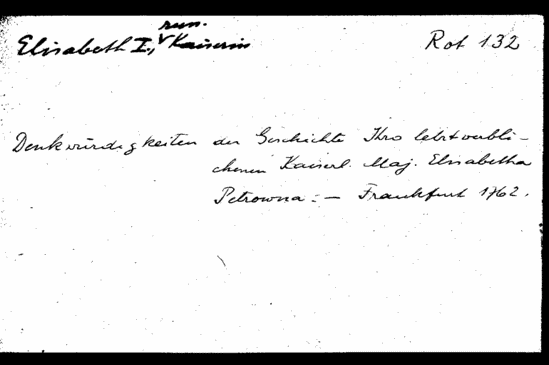 Elisabeth I., russ. Kaiserin
Rot 132
Denkwürdigkeiten der Geschichte Ihro letztverbli-
chenen Kaiserl. Maj. Elisabetha
Petrowna: — Frankfurt 1762.